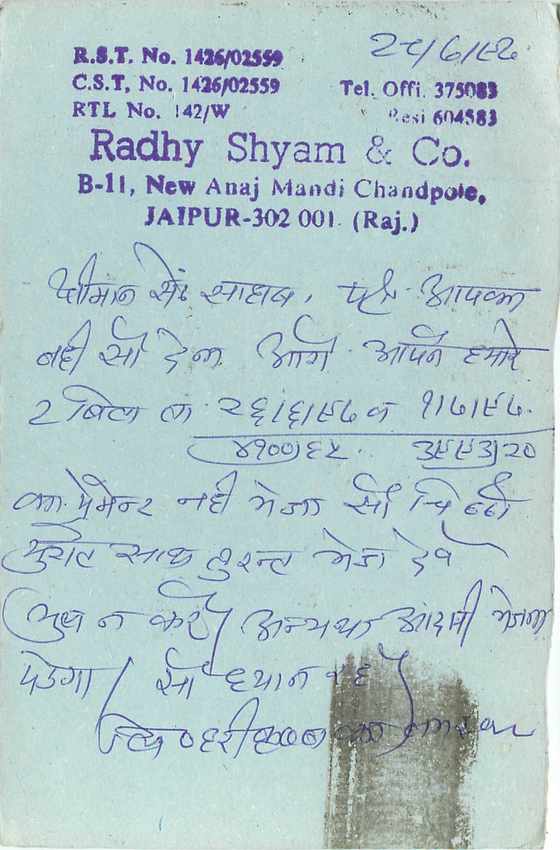 R.S.T. No. 1426/02559
C.S.T. No. 1426/02559
RTL No. 142/W
Tel. Offi. 375083
Resi 604583
Radhy Shyam & Co.
B-11, New Anaj Mandi Chandpole,
JAIPUR-302 001. (Raj.)
श्रीमान सेठ साहब, पत्र आपका
नही सो देना, आगे आपने हमारे
2 बिल ता. २६।६।९७ व १।७।९७.
४१००)६५. ३९९३)२०
का पेमेन्ट नही भेजा सो चिट्ठी
साथ तुरन्त भेज देवे
न करे। अन्यथा आदमी भेजना
पडेगा। सो ध्यान रहे।
का नमस्कार